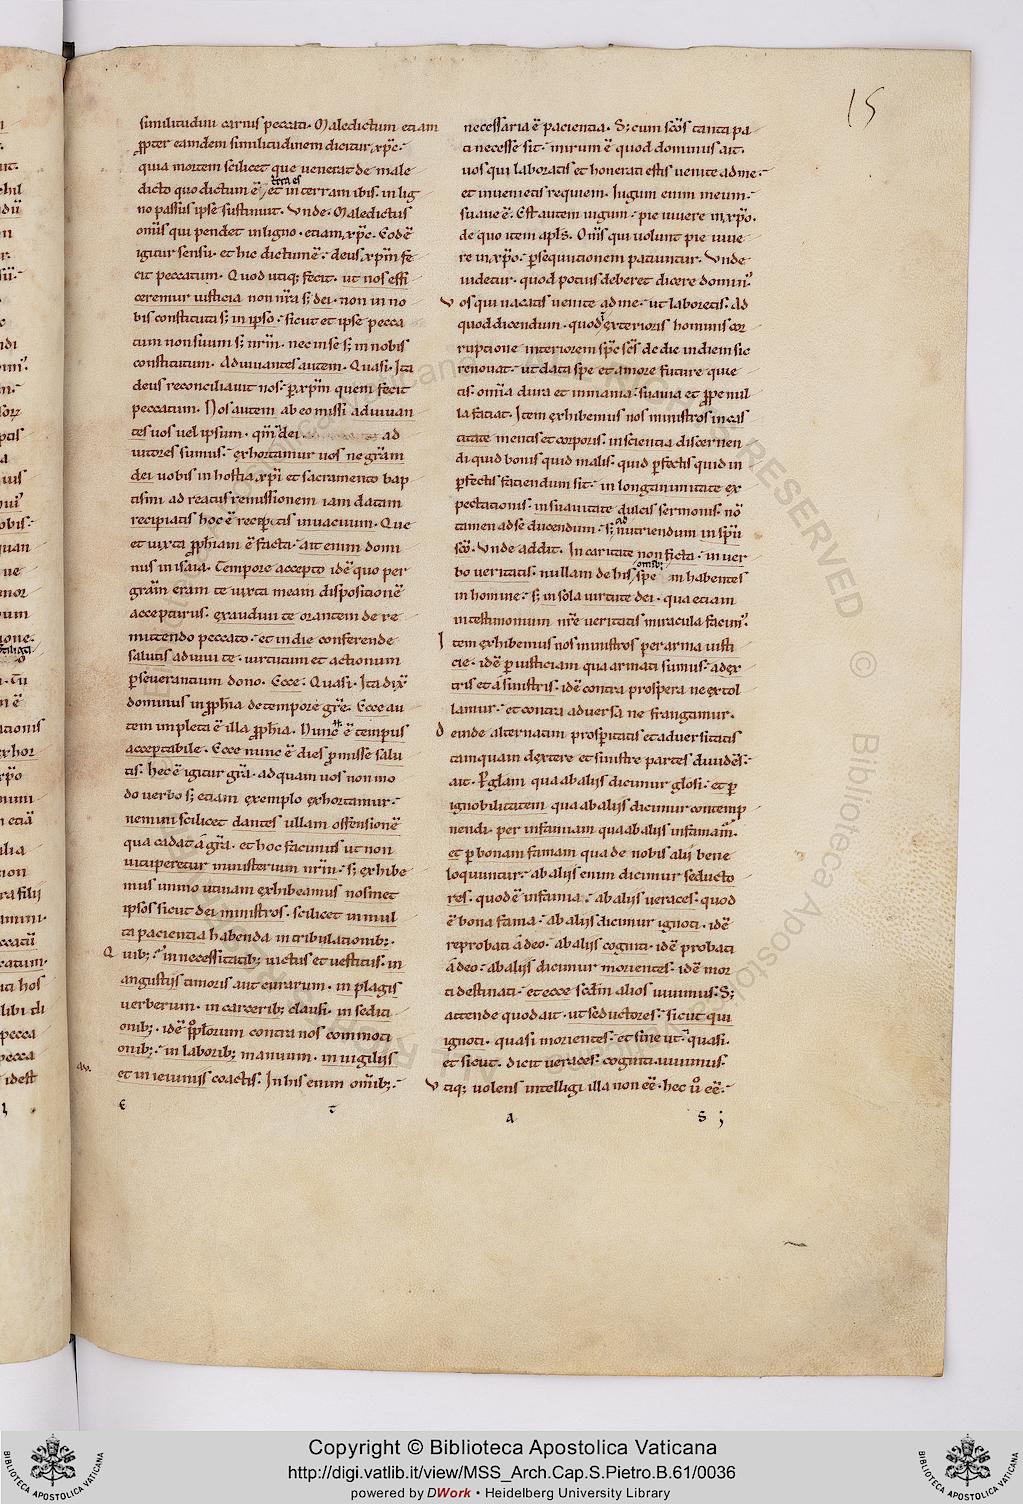 15
similitudini carnis peccati. Maledictum etiam
ꝓpter eamdem similitudinem dicitur xp̅c.
quia mortem scilicet que venerat de male
dicto quo dictum ē terra es et in terram ibis. in lig
no passus ipse sustinuit. Vnde. Maledictus
om̅is qui pendet in ligno. etiam xp̅c. Eodē
igitur sensu. et hic dictum ē. deus xp̅m fe
cit peccatum. Quod utiq; fecit. ut nos effi
ceremur iusticia non nr̅a s; dei. non in no
bis constituta s; in ipso. sicut et ipse pecca
tum non suum s; nr̅m. nec in se s; in nobis
constitutum. Adiuuantes autem. Quasi. Ita
deus reconciliauit nos. ꝑ xp̅m quem fecit
peccatum. Nos autem ab eo missi adiuuan
tes uos uel ipsum. qm̅ dei ad
iutores sumus. exhortamur uos ne gr̅am
dei uobis in hostia xp̅i et sacramento bap
tismi ad reatus remissionem iam datam
recipiatis hoc ē recipiatis in uacuum. Que
et iuxta ꝓphiam ē facta. ait enim domi
nus in isaia. Tempore accepto idē quo per
gr̅am eram te iuxta meam dispositionē
accepturus. exaudiui te orantem de re
mittendo peccato. et in die conferende
salutis adiuui te. uirtutum et actionum
ꝑseuerantium dono. Ecce. Quasi. Ita dix̅
dominus in ꝓphia de tempore gr̅e. Ecce au
tem impleta ē illa ꝓphia. Nunc ē tempus
acceptabile. Ecce nunc ē dies ꝓmisse salu
tis. hec ē igitur gr̅a. ad quam uos non mo
do uerbo s; etiam exemplo exhortamur.
nemini scilicet dantes ullam offensionē
qua cadat a gr̅a. et hoc facimus ut non
uituperetur ministerium nr̅m. s; exhibe
mus immo utinam exhibeamus nosmet
ipsos sicut dei ministros. scilicet in mul
ta pacientia habenda in tribulationib;.
Quib; in necessitatib; uictus et uestitus. in
angustiis timoris aut curarum. in plagis
uerberum. in carcerib; clausi. in sediti
onib;. idē pp̅lorum contra nos commoti
onib;. in laborib; manuum. in uigiliis
et in ieiuniis coactis. In his enim om̅ib;.
necessaria ē pacientia. S; cum scōs tanta pa
ti necesse sit. mirum ē quod dominus ait.
uos qui laboratis et honerati estis uenite ad me.
et inuenietis requiem. Iugum enim meum.
suaue ē. Est autem iugum. pie uiuere in xp̅o.
de quo item apl̅s. Om̅s qui uolunt pie uiue
re in xp̅o. ꝑsequutionem patiuntur. Vnde
uidetur. quod potius deberet dicere domin'.
Vos qui uacatis uenite ad me. ut laboretis. Ad
quod dicendum. quod exterioris hominis cor
ruptione interiorem sp̅c sc̅s de die in diem sic
renouat. ut data spe et amore future quie
tis. om̅ia dura et inmania. suauia et ꝓpe nul
la faciat. Item exhibemus nos ministros in cas
titate mentis et corporis. in scientia discernen
di quid bonis quid malis. quid ꝑfectis quid in
ꝑfectis faciendum sit. in longanimitate ex
pectationis. in suauitate dulcis sermonis. nō
tamen ad se ducendum. s; ad nutriendum in sp̅u
sc̅o. Vnde addit. In caritate non ficta. in uer
bo ueritatis. nullam de his omib; spem habentes
in homine. s; in sola uirtute dei. qua etiam
in testimonium nr̅e ueritatis miracula facim'.
Item exhibemus nos ministros per arma iusti
cie. idē ꝑ iusticiam qua armati sumus. a dex
tris et a sinistris. idē contra prospera ne extol
lamur. et contra aduersa ne frangamur.
deinde alternatim prosperitatis et aduersitatis
tamquam dextere et sinistre partes diuidēs.
ait. Per glam qua ab aliis dicimur glosi. et ꝑ
ignobilitatem qua ab aliis dicimur contemp
nendi. per infamiam qua ab aliis infamam̅.
et ꝑ bonam famam qua de nobis alii bene
loquuntur. ab aliis enim dicimur seducto
res. quod ē infamia. ab aliis ueraces. quod
ē bona fama. ab aliis dicimur ignoti. idē
reprobati a deo. ab aliis cogniti. idē probati
a deo. ab aliis dicimur morientes. idē mor
ti destinati. et ecce scdm̅ alios uiuimus. S;
attende quod ait. ut seductores. sicut qui
ignoti. quasi morientes. et sine ut. quasi.
et sicut. dicit ueraces. cogniti. uiuimus.
Vtiq; uolens intelligi illa non eē. hec u̅o eē.
E T A S ;